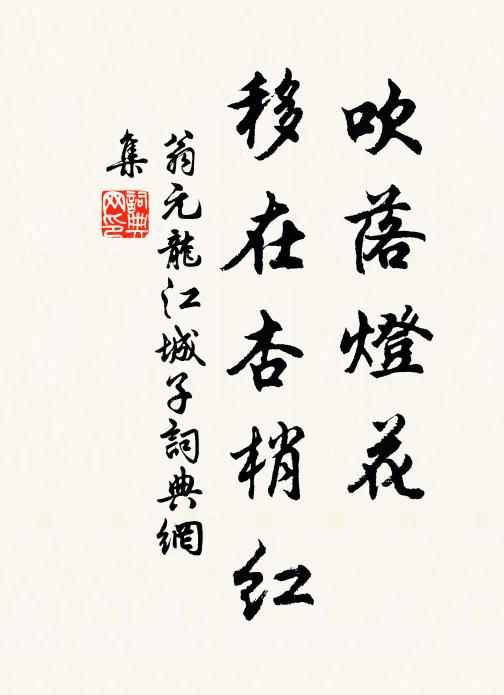 吹落燈花
移在杏梢紅
翁元龍江城子詞典網
集
詞典
网印